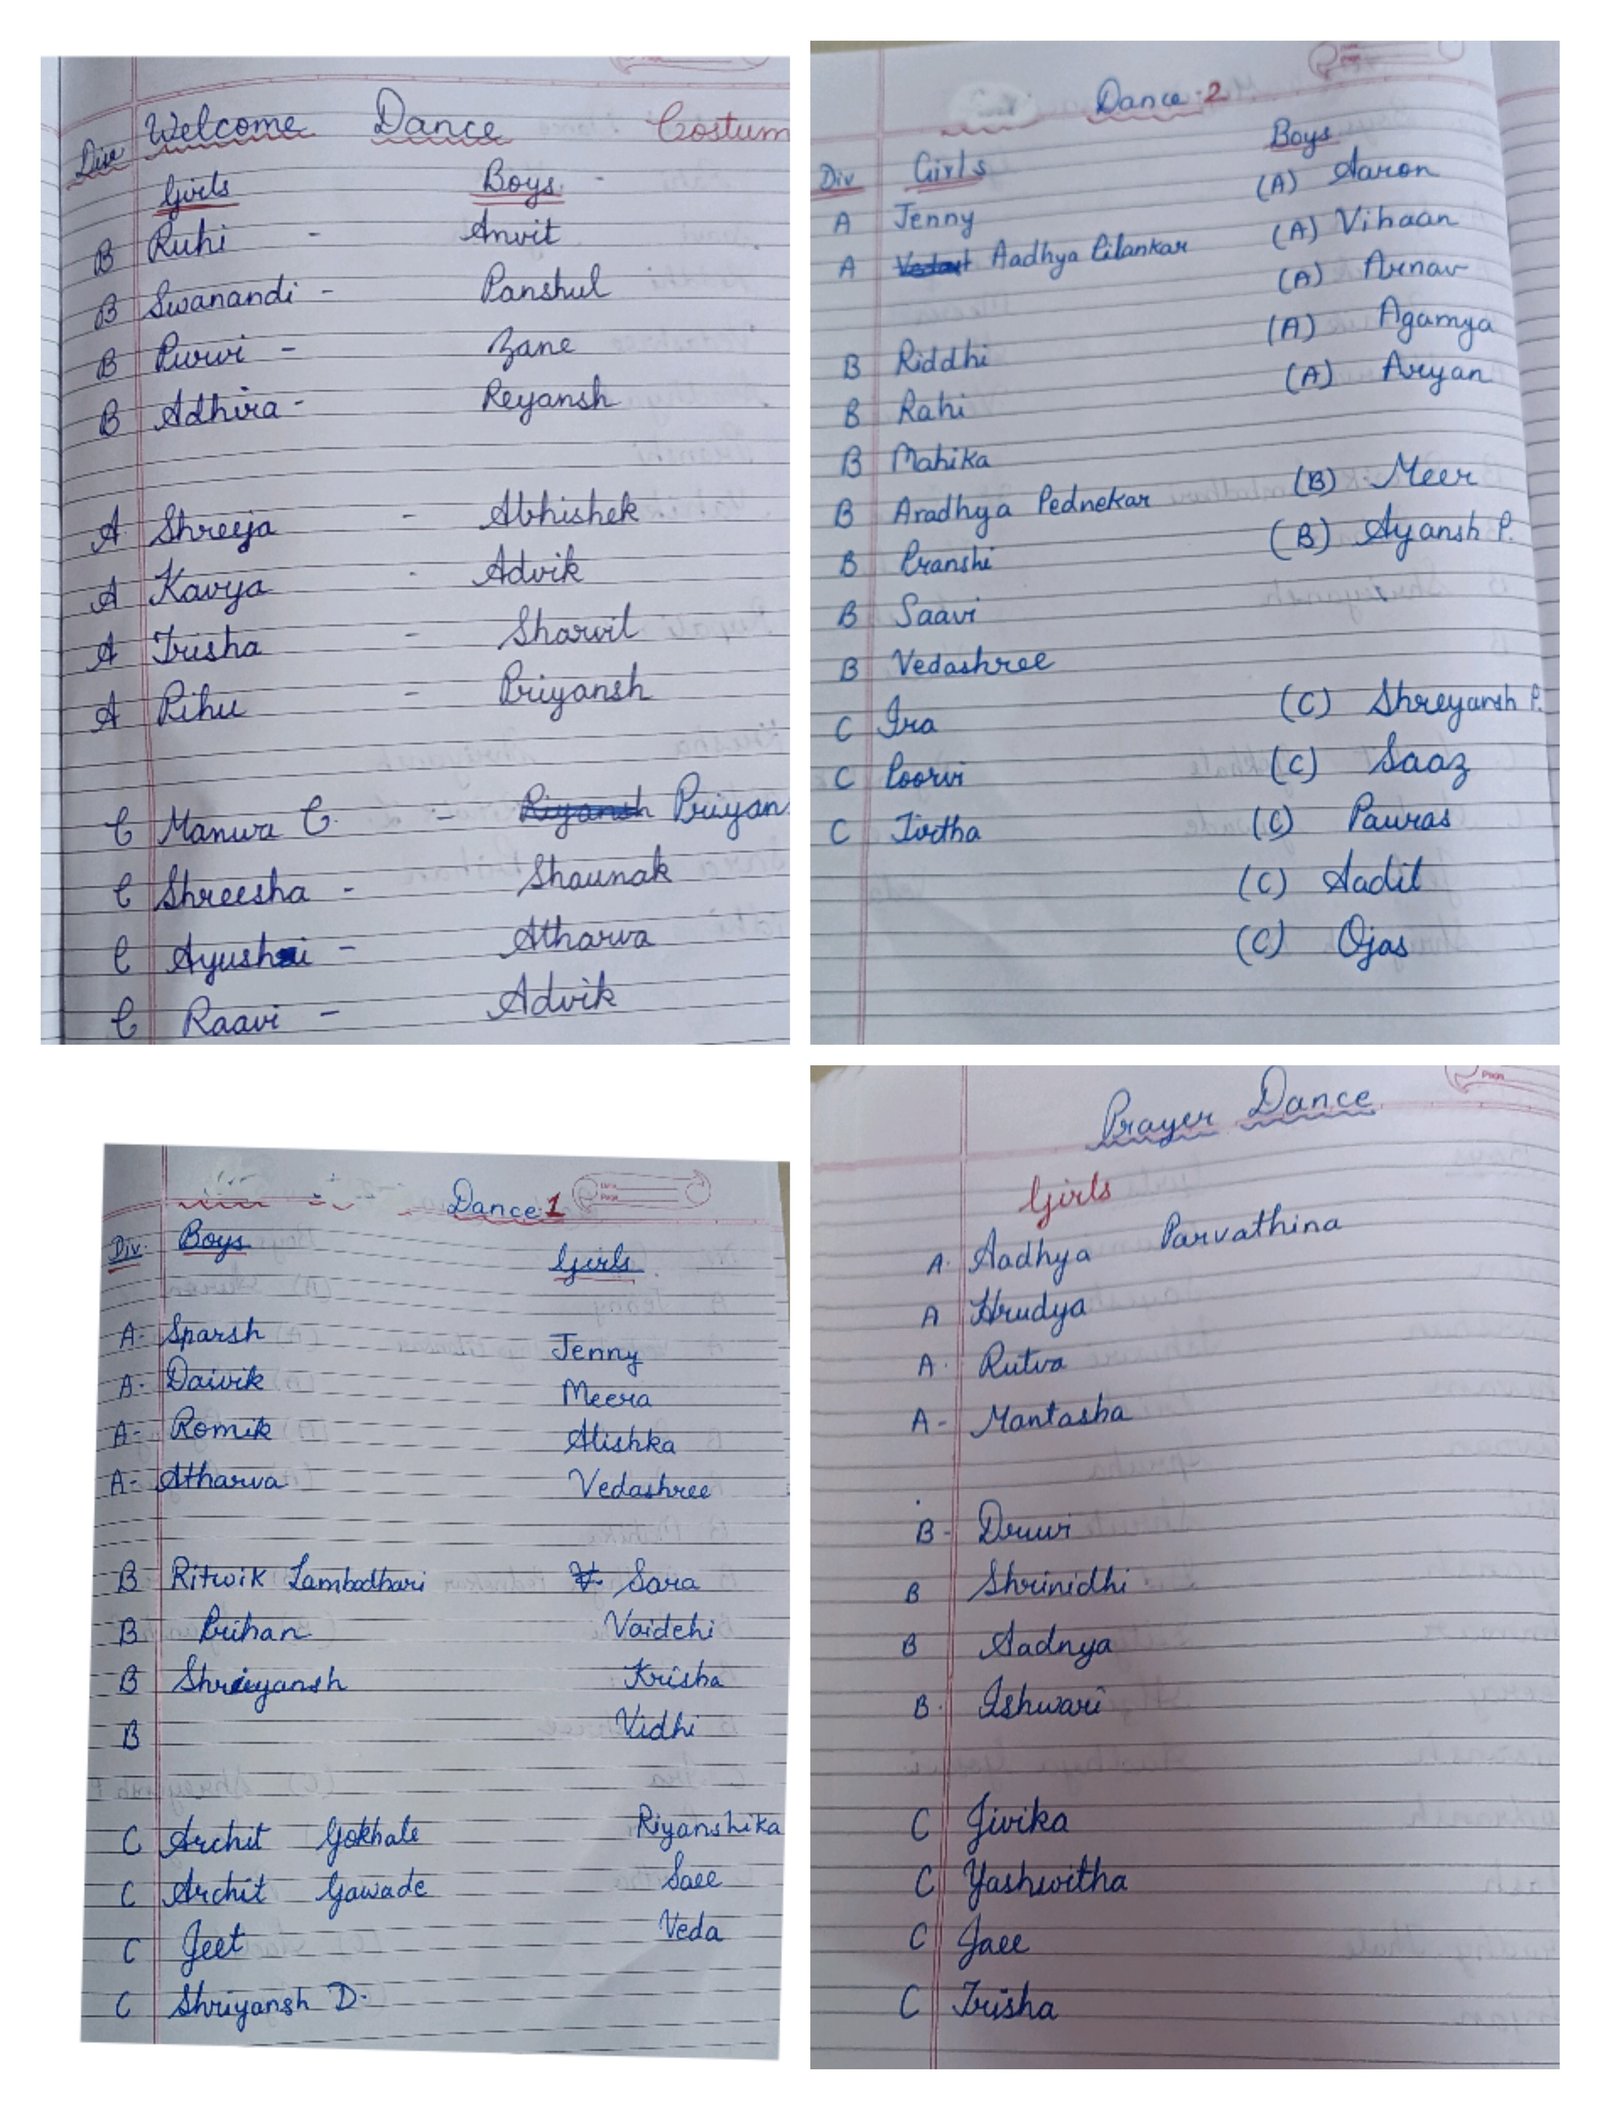 Welcome Dance Costum
Div
Girls Boys
B Ruhi - Anvit
B Swanandi - Panshul
B Purvi - Zane
B Adhira - Reyansh
A Shreeja - Abhishek
A Kavya - Advik
A Trisha - Sharvil
A Pihu - Priyansh
C Manwa C. - Priyan
C Shreesha - Shaunak
C Ayushi - Atharva
C Raavi - Advik
Dance-2
Div Girls Boys
A Jenny (A) Aaron
A Aadhya Pilankar (A) Vihaan
(A) Arnav
(A) Agamya
B Riddhi (A) Aryan
B Rahi
B Mahika
B Aradhya Pednekar (B) Meer
B Pranshi (B) Ayansh P.
B Saavi
B Vedashree
C Ira (C) Shreyansh P.
C Poorvi (C) Saaz
C Tirtha (C) Pauras
(C) Aadil
(C) Ojas
Dance-1
Div. Boys Girls
A- Sparsh Jenny
A- Daivik Meera
A- Romik Alishka
A- Atharva Vedashree
B Ritwik Lambodhari Sara
B Prihan Vaidehi
B Shriyansh Krisha
B Vidhi
C Archit Gokhale Riyanshika
C Archit Gawade Saee
C Jeet Veda
C Shriyansh D.
Prayer Dance
Girls
A. Aadhya Parvathina
A Hrudya
A. Rutva
A- Mantasha
B- Druvi
B Shrinidhi
B Aadnya
B. Ishwari
C Jivika
C Yashwitha
C Jaee
C Trisha